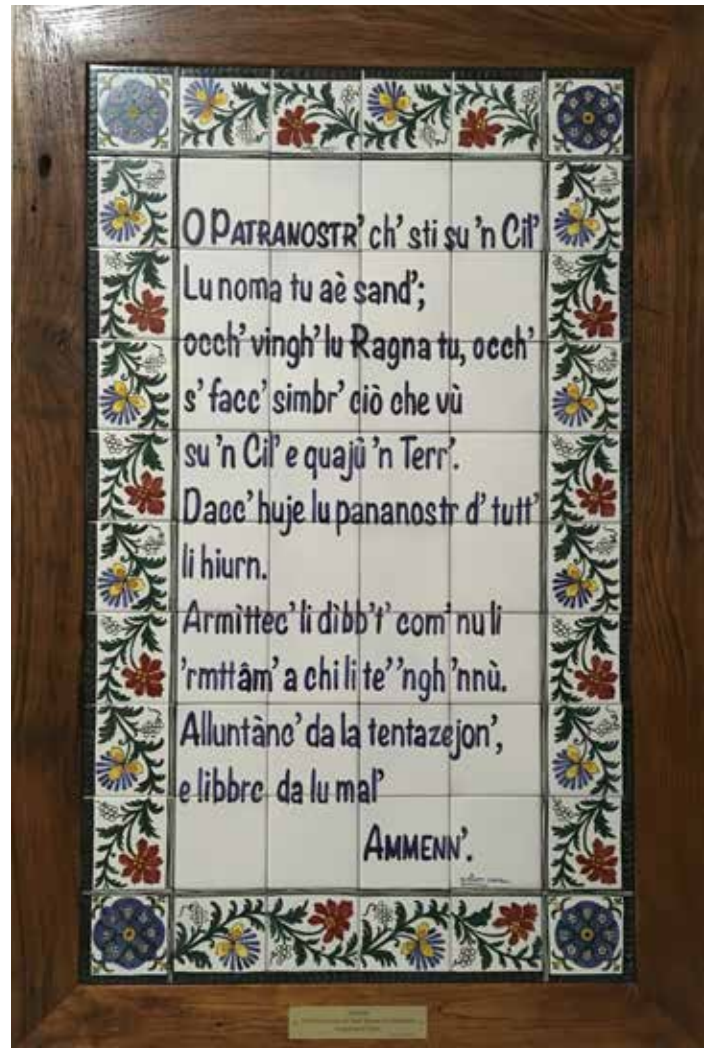 O PATRANOSTR' ch' sti su 'n Cil'
Lu noma tu aè sand';
occh' vingh' lu Ragna tu, occh'
s' facc' simbr' ciò che vù
su 'n Cil' e quajù 'n Terr'.
Dacc' huje lu pananostr d' tutt'
li hiurn.
Armìttec' li dìbb't' com' nu li
'rmttâm' a chi li te' 'ngh 'nnù.
Alluntànc' da la tentazejon',
e libbrc da lu mal'
AMMENN'.